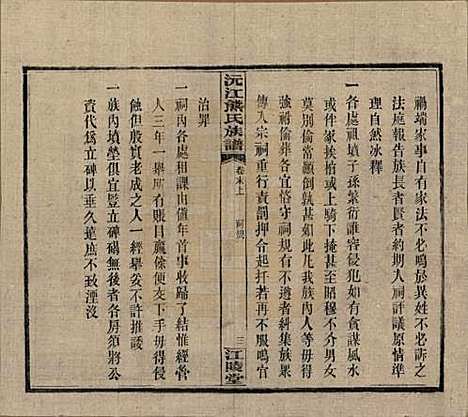 禍端家事自有家法不必鳴於異姓不必訴之
法庭報告族長者賢者約期人祠評議原情準
理自然冰釋
一各處祖墳子孫繁衍誰容侵犯如有貪謀風水
或伴家挨棺或騎頭截腳甚至昭穆不分男女
莫別倫常顛倒孰甚如此凡我族內人等毋得
強褙偷葬各宜恪守祠規有不遵者糾集族衆
傳入宗祠重行責罰押合起扦若再不服鳴官
沅江熊氏族譜
卷末上
祠規
三
江陵堂
治罪
一祠內各處租課由值年首事收歸了結惟經管
人三年一舉所有賬目贏餘便交下手毋得侵
蝕但殷實老成之人一經舉妥不許推諉
一族內墳塋俱宜豎立碑碣無後者各房須將公
資代爲立碑以垂久遠庶不致湮沒